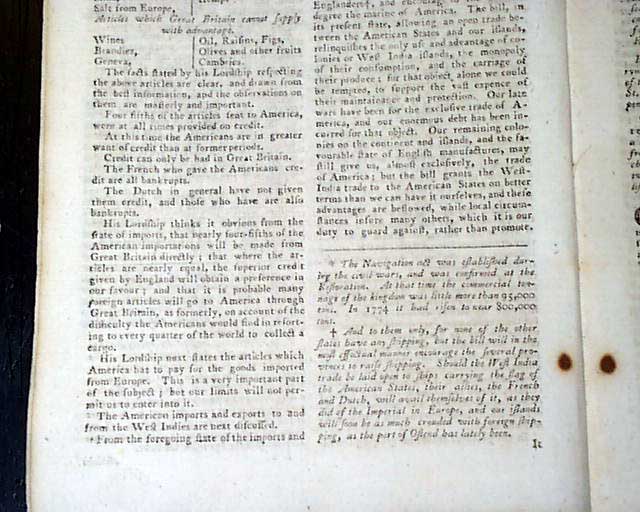 Salt from Europe,
Articles which Great Britain cannot supply
with advantage.
Wines
Brandies,
Geneva,
Oil, Raisins, Figs,
Olives and other fruits
Cambrics.
The facts stated by his Lordship respecting
the above articles are clear, and drawn from
the best information, and the observations on
them are masterly and important.
Four fifths of the articles sent to America,
were at all times provided on credit.
At this time the Americans are in greater
want of credit than at former periods.
Credit can only be had in Great Britain.
The French who gave the Americans cre-
dit are all bankrupts.
The Dutch in general have not given
them credit, and those who have are also
bankrupts.
His Lordship thinks it obvious from the
state of imports, that nearly four-fifths of the
American importations will be made from
Great Britain directly; that where the ar-
ticles are nearly equal, the superior credit
given by England will obtain a preference in
our favour; and that it is probable many
foreign articles will go to America through
Great Britain, as formerly, on account of the
difficulty the Americans would find in resort-
ing to every quarter of the world to collect a
cargo.
His Lordship next states the articles which
America has to pay for the goods imported
from Europe. This is a very important part
of the subject; but our limits will not per-
mit us to enter into it.
The American imports and exports to and
from the West Indies are next discussed.
From the foregoing state of the imports and
degree the marine of America. The bill, in
its present state, allowing an open trade be-
tween the American States and our islands,
relinquishes the only use and advantage of co-
lonies or West India islands, the monopoly
of their consumption, and the carriage of
their produce; for that object alone we could
be tempted, to support the vast expence of
their maintenance and protection. Our late
wars have been for the exclusive trade of A-
merica, and our enormous debt has been in-
curred for that object. Our remaining colo-
nies on the continent and islands, and the fa-
vourable state of English manufactures, may
still give us, almost exclusively, the trade
of America; but the bill grants the West-
India trade to the American States on better
terms than we can have it ourselves, and these
advantages are bestowed, while local circum-
stances insure many others, which it is our
duty to guard against, rather than promote.
* The Navigation act was established dur-
ing the civil wars, and was confirmed at the
Restoration. At that time the commercial ton-
nage of the kingdom was little more than 95,000
tons. In 1774 it had risen to near 800,000
tons.
† And to them only, for none of the other
states have any shipping, but the bill will in the
most effectual manner encourage the several pro-
vinces to raise shipping. Should the West India
trade be laid open to ships carrying the flag of
the American States, their allies, the French
and Dutch, will avail themselves of it, as they
did of the Imperial in Europe, and our islands
will soon be as much crouded with foreign ship-
ping, as the port of Ostend has lately been.